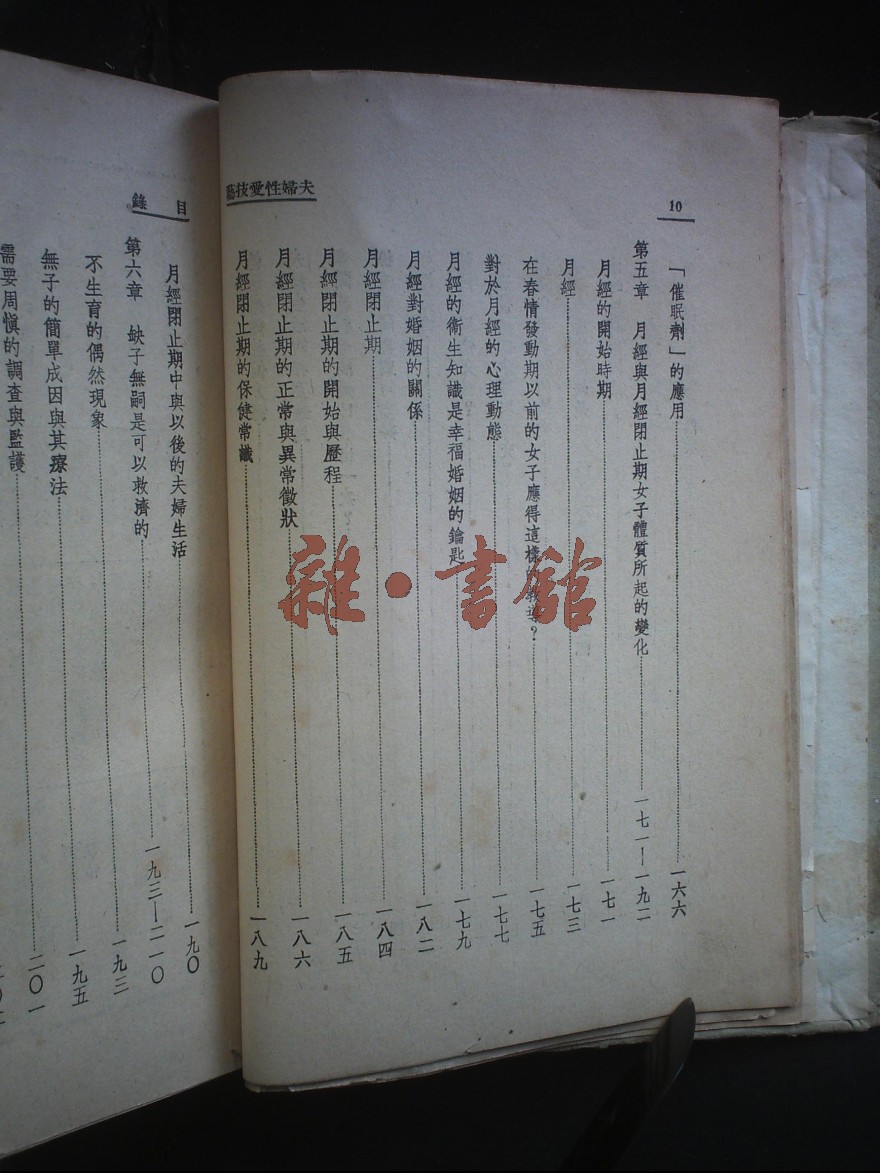 10
夫婦性愛技藝
「催眠劑」的應用 一六六
第五章 月經與月經閉止期女子體質所起的變化 一七一—一九二
月經的開始時期 一七一
月經 一七三
在春情發動期以前的女子應得這樣的教導？ 一七五
對於月經的心理動態 一七七
月經的衛生知識是幸福婚姻的鑰匙 一七九
月經對婚姻的關係 一八二
月經閉止期 一八四
月經閉止期的開始與歷程 一八五
月經閉止期的正常與異常徵狀 一八六
月經閉止期的保健常識 一八九
目錄
月經閉止期中與以後的夫婦生活 一九〇
第六章 缺子無嗣是可以救濟的 一九三—二一〇
不生育的偶然現象 一九三
無子的簡單成因與其療法 一九五
需要周慎的調查與監護 二〇一
雜·書館